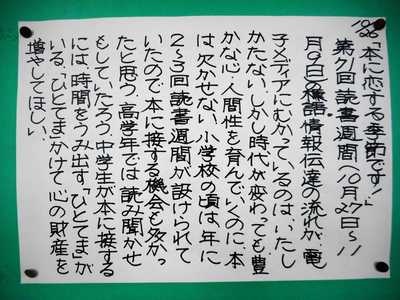 10/26
「本に恋する季節です!」
第71回読書週間(10月27日〜11
月9日)標語 情報伝達の流れが、電
子メディアにむかっているのは、いたし
かたない。しかし時代が変わっても、豊
かな心、人間性を育んでいくのに、本
は欠かせない。小学校の頃は、年に
2〜3回読書週間が設けられて
いたので本に接する機会も多かっ
たと思う。高学年では、読み聞かせ
もしていたろう。中学生が本に接する
には、時間をうみ出す「ひとてま」が
いる。「ひとてま」かけて心の財産を
増やしてほしい。